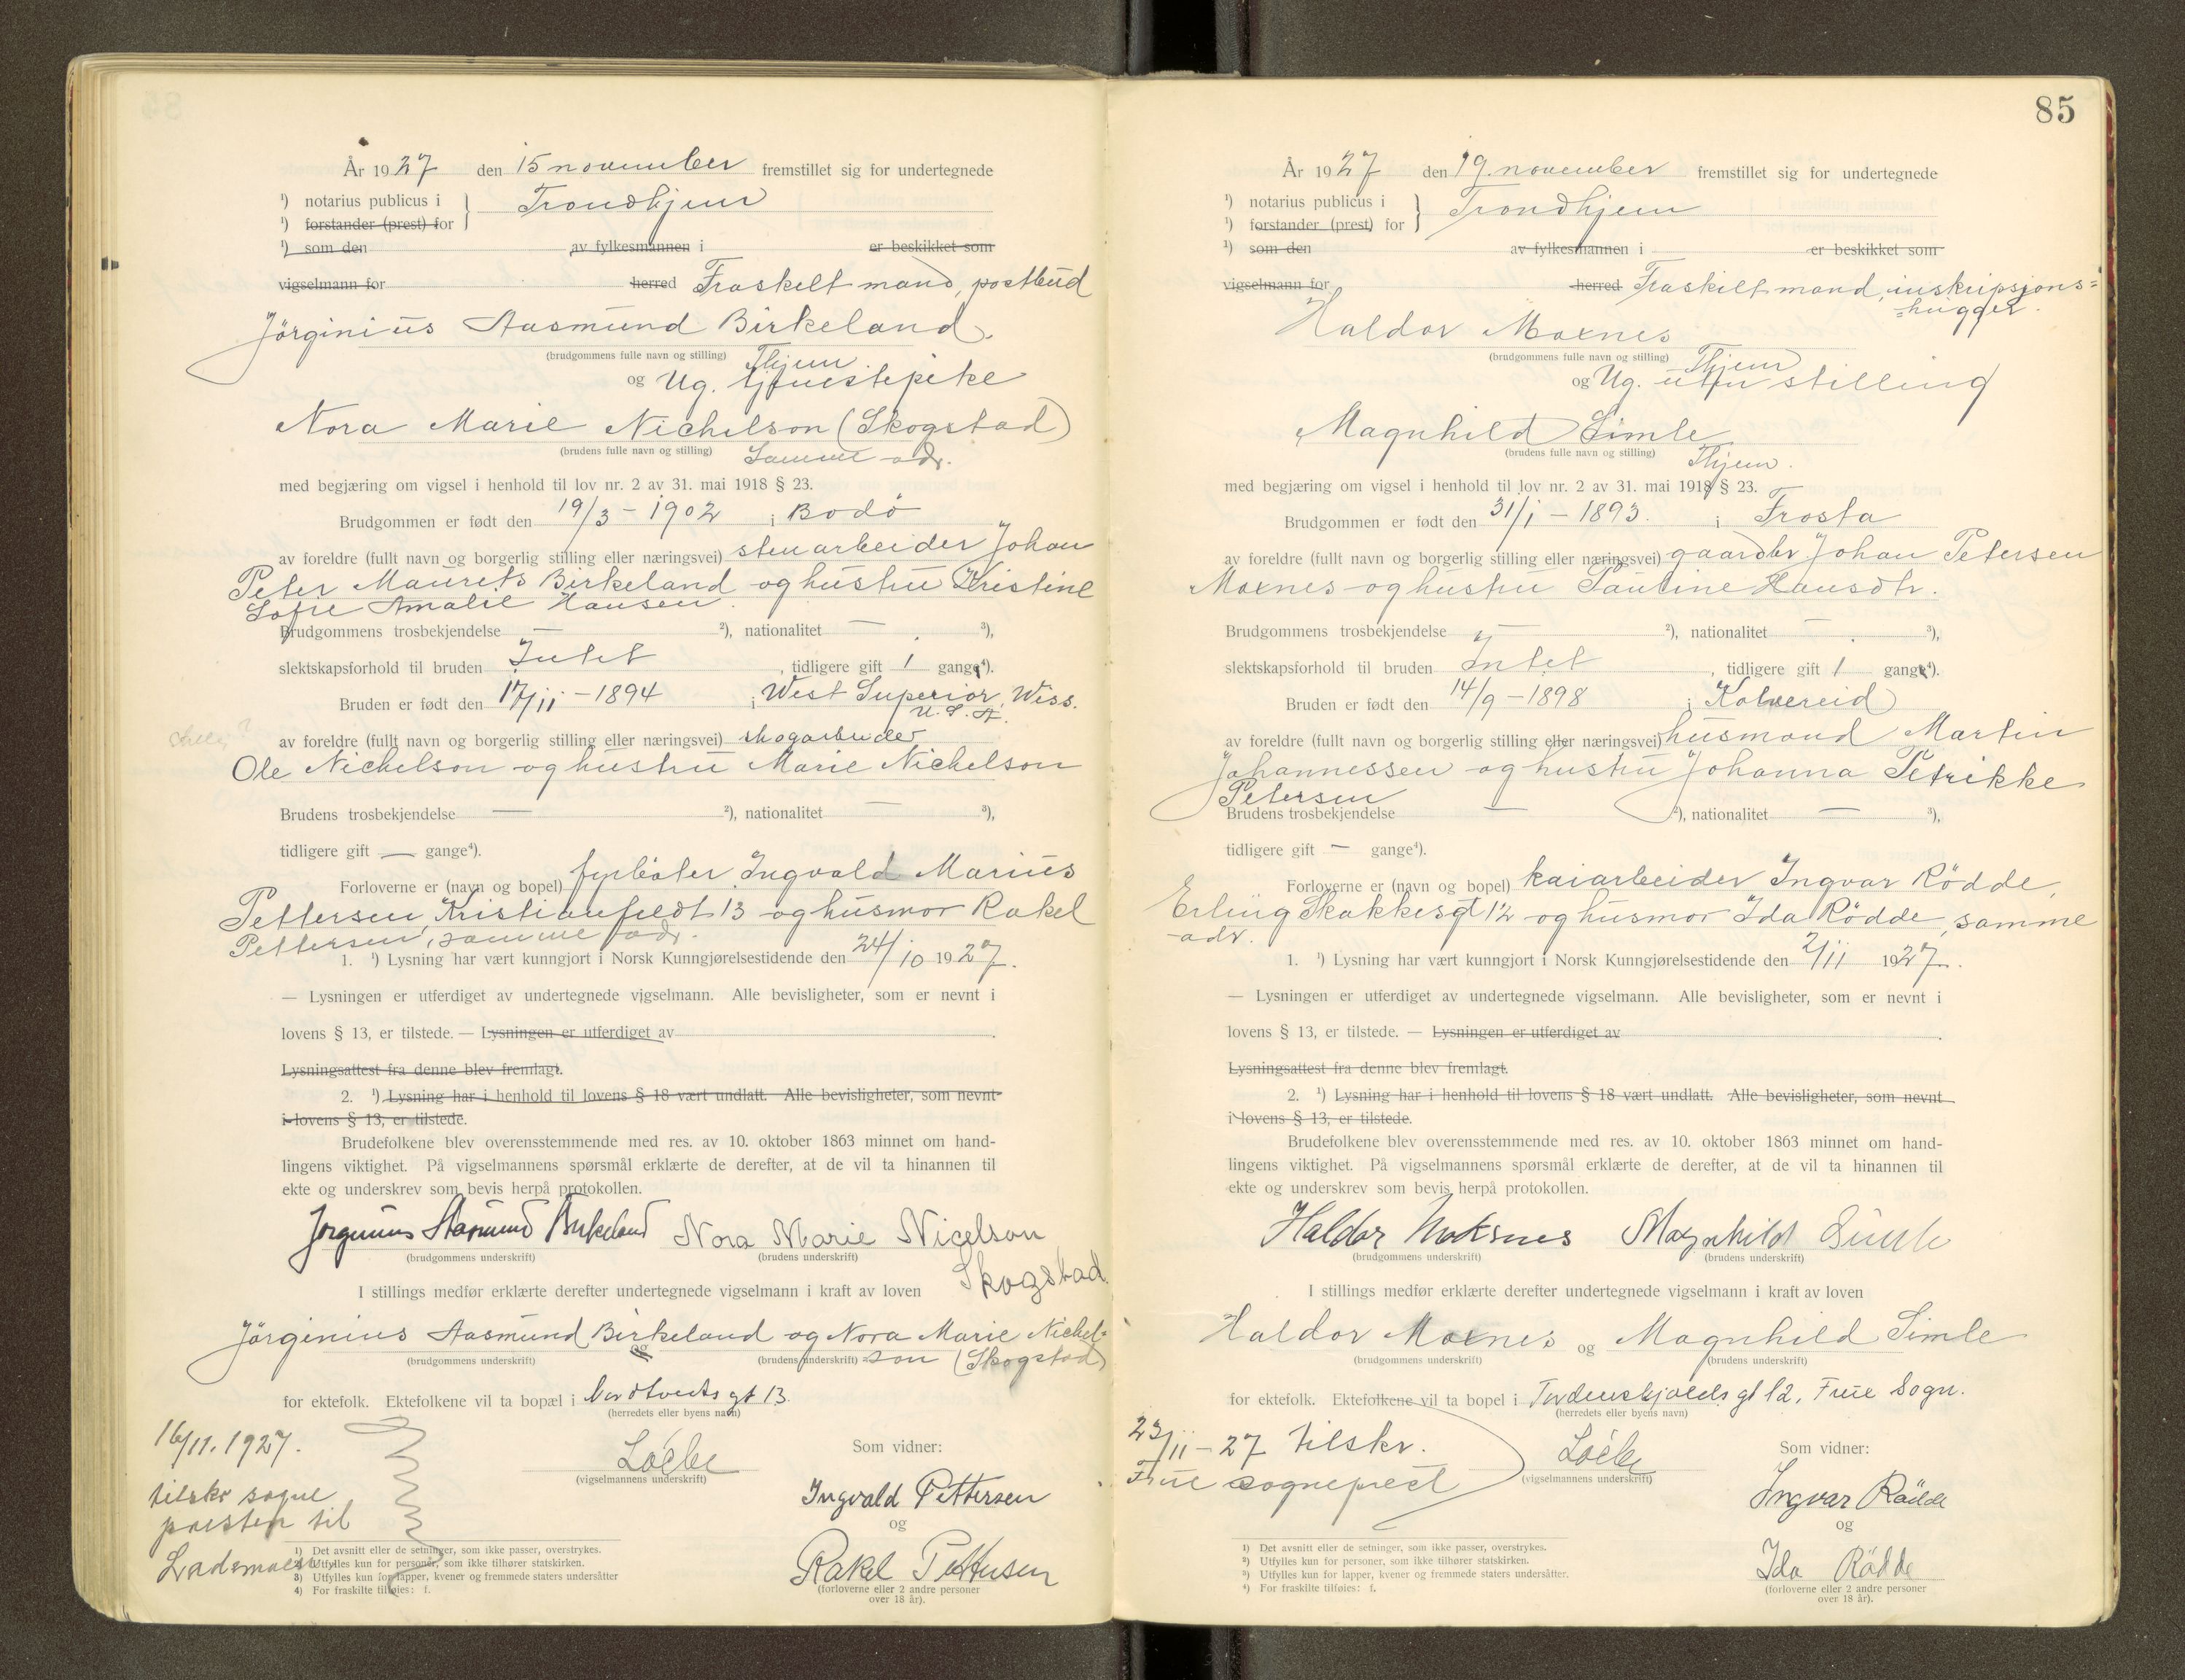 År 1927 den 15 november fremstillet sig for undertegnede
¹) notarius publicus i
¹) forstander (prest) for } Trondhjem
¹) som den av fylkesmannen i er beskikket som
vigselmann for herred Fraskelt mand, postbud
Jörginius Aasmund Birkeland.
(brudgommens fulle navn og stilling) Thjem
og Ug. tjenestepike
Nora Marie Nichelson (Skogstad)
(brudens fulle navn og stilling) Samme adr.
med begjæring om vigsel i henhold til lov nr. 2 av 31. mai 1918 § 23.
Brudgommen er født den 19/3 - 1902 i Bodö
av foreldre (fullt navn og borgerlig stilling eller næringsvei) stenarbeider Johan
Peter Maurets Birkeland og hustru Kristine
Sofie Amalie Hansen.
Brudgommens trosbekjendelse — ²), nationalitet — ³),
slektskapsforhold til bruden Intet, tidligere gift 1 gang⁴).
Bruden er født den 17/11 - 1894 i West Superior, Wiss.
U.S.A.
av foreldre (fullt navn og borgerlig stilling eller næringsvei) skogarbeider
Ole Nichelson og hustru Marie Nichelson
Brudens trosbekjendelse — ²), nationalitet — ³),
tidligere gift — gange⁴).
Forloverne er (navn og bopel) fyrböter Ingvald Marius
Pettersen, Kristianfeldt 13 og husmor Rakel
Pettersen, samme adr.
1. ¹) Lysning har vært kunngjort i Norsk Kunngjørelsestidende den 24/10 1927.
— Lysningen er utferdiget av undertegnede vigselmann. Alle bevisligheter, som er nevnt i
lovens § 13, er tilstede. — Lysningen er utferdiget av .
Lysningsattest fra denne blev fremlagt.
2. ¹) Lysning har i henhold til lovens § 18 vært undlatt. Alle bevisligheter, som nevnt
i lovens § 13, er tilstede.
Brudefolkene blev overensstemmende med res. av 10. oktober 1863 minnet om hand-
lingens viktighet. På vigselmannens spørsmål erklærte de derefter, at de vil ta hinannen til
ekte og underskrev som bevis herpå protokollen.
Jørginius Aasmund Birkeland Nora Marie Nicelson
(brudgommens underskrift) (brudens underskrift)
Skogstad.
I stillings medfør erklærte derefter undertegnede vigselmann i kraft av loven
Jörginius Aasmund Birkeland og Nora Marie Nichel-
(brudgommens underskrift) og (brudens underskrift) son (Skogstad)
for ektefolk. Ektefolkene vil ta bopæl i gt 13.
(herredets eller byens navn)
16/11. 1927.
tilskr sogne
presten til
Lademoen
(vigselmannens underskrift)
Som vidner:
Ingvald Pettersen
og
Rakel Pettersen
(forloverne eller 2 andre personer
over 18 år).
1) Det avsnitt eller de setninger, som ikke passer, overstrykes.
2) Utfylles kun for personer, som ikke tilhører statskirken.
3) Utfylles kun for lapper, kvener og fremmede staters undersåtter
4) For fraskilte tilføies: f.
85
År 1927 den 19. november fremstillet sig for undertegnede
¹) notarius publicus i
¹) forstander (prest) for } Trondhjem
¹) som den av fylkesmannen i er beskikket som
vigselmann for herred Fraskilt mand, inskripsjons=
=hugger.
Haldor Moxnes
(brudgommens fulle navn og stilling) Thjem
og Ug. uten stilling
Magnhild Simle
(brudens fulle navn og stilling) Thjem.
med begjæring om vigsel i henhold til lov nr. 2 av 31. mai 1918 § 23.
Brudgommen er født den 31/1 - 1893. i Frosta
av foreldre (fullt navn og borgerlig stilling eller næringsvei) gaardbr. Johan Petersen
Moxnes og hustru Pauline Hansdtr.
Brudgommens trosbekjendelse — ²), nationalitet — ³),
slektskapsforhold til bruden Intet, tidligere gift 1 gang⁴).
Bruden er født den 14/9 - 1898 i Kolvereid
av foreldre (fullt navn og borgerlig stilling eller næringsvei) husmand Martin
Johannessen og hustru Johanna Petrikke
Petersen
Brudens trosbekjendelse — ²), nationalitet — ³),
tidligere gift — gange⁴).
Forloverne er (navn og bopel) kaiarbeider Ingvar Rödde,
Erling Skakkesgt 12 og husmor Ida Rödde, samme
adr.
1. ¹) Lysning har vært kunngjort i Norsk Kunngjørelsestidende den 2/11 1927.
— Lysningen er utferdiget av undertegnede vigselmann. Alle bevisligheter, som er nevnt i
lovens § 13, er tilstede. — Lysningen er utferdiget av .
Lysningsattest fra denne blev fremlagt.
2. ¹) Lysning har i henhold til lovens § 18 vært undlatt. Alle bevisligheter, som nevnt
i lovens § 13, er tilstede.
Brudefolkene blev overensstemmende med res. av 10. oktober 1863 minnet om hand-
lingens viktighet. På vigselmannens spørsmål erklærte de derefter, at de vil ta hinannen til
ekte og underskrev som bevis herpå protokollen.
Haldor Moksnes Magnhild Simle
(brudgommens underskrift) (brudens underskrift)
I stillings medfør erklærte derefter undertegnede vigselmann i kraft av loven
Haldor Moxnes og Magnhild Simle
(brudgommens underskrift) (brudens underskrift)
for ektefolk. Ektefolkene vil ta bopel i Tordenskjolds gt 12, Frue Sogn.
(herredets eller byens navn)
23/11 - 27 tilskr.
Frue sogneprest
(vigselmannens underskrift)
Som vidner:
Ingvar Rödde
og
Ida Rödde
(forloverne eller 2 andre personer
over 18 år).
¹) Det avsnitt eller de setninger, som ikke passer, overstrykes.
²) Utfylles kun for personer, som ikke tilhører statskirken.
³) Utfylles kun for lapper, kvener og fremmede staters undersåtter.
⁴) For fraskilte tilføies: f.